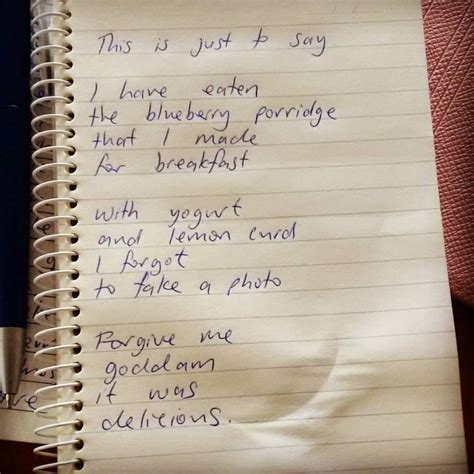 This is just to say
I have eaten
the blueberry porridge
that I made
for breakfast
with yogurt
and lemon curd
I forgot
to take a photo
Forgive me
goddam
it was
delicious.